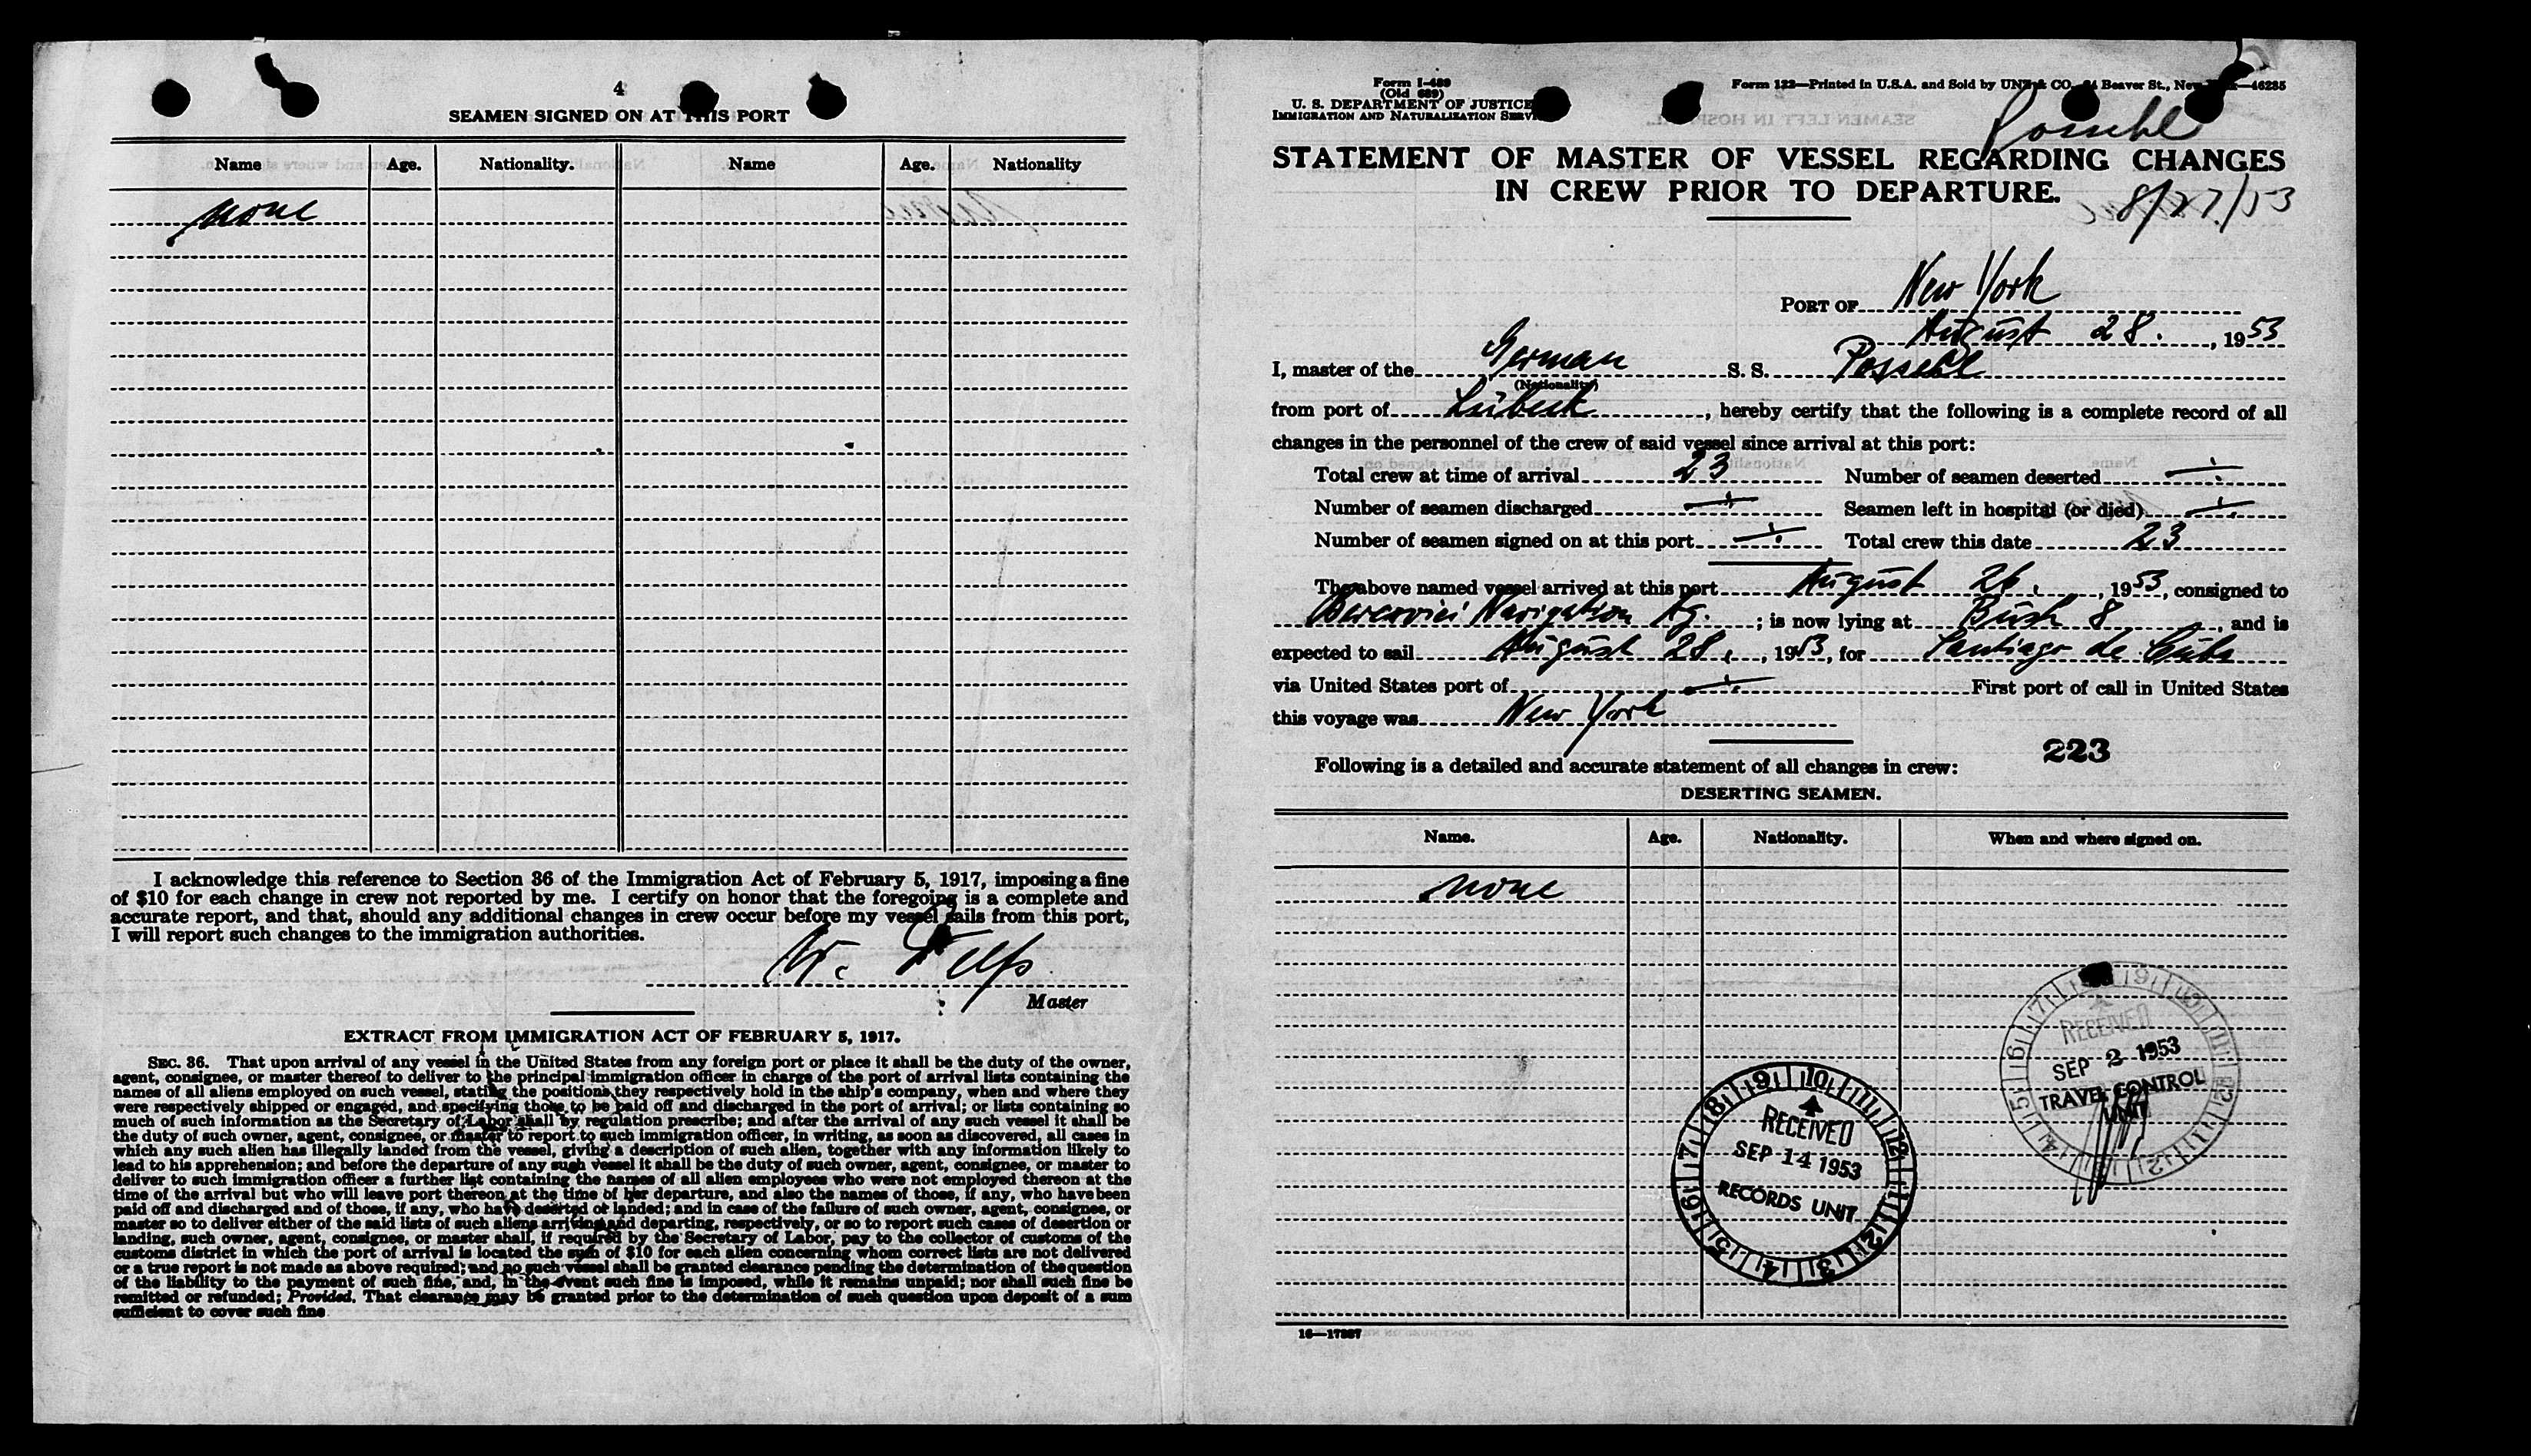 4
SEAMEN SIGNED ON AT THIS PORT
Name Age. Nationality. Name Age. Nationality
none
I acknowledge this reference to Section 36 of the Immigration Act of February 5, 1917, imposing a fine
of $10 for each change in crew not reported by me. I certify on honor that the foregoing is a complete and
accurate report, and that, should any additional changes in crew occur before my vessel sails from this port,
I will report such changes to the immigration authorities.
Master
EXTRACT FROM IMMIGRATION ACT OF FEBRUARY 5, 1917.
SEC. 36. That upon arrival of any vessel in the United States from any foreign port or place it shall be the duty of the owner,
agent, consignee, or master thereof to deliver to the principal immigration officer in charge of the port of arrival lists containing the
names of all aliens employed on such vessel, stating the positions they respectively hold in the ship's company, when and where they
were respectively shipped or engaged, and specifying those to be paid off and discharged in the port of arrival; or lists containing so
much of such information as the Secretary of Labor shall by regulation prescribe; and after the arrival of any such vessel it shall be
the duty of such owner, agent, consignee, or master to report to such immigration officer, in writing, as soon as discovered, all cases in
which any such alien has illegally landed from the vessel, giving a description of such alien, together with any information likely to
lead to his apprehension; and before the departure of any such vessel it shall be the duty of such owner, agent, consignee, or master to
deliver to such immigration officer a further list containing the names of all alien employees who were not employed thereon at the
time of the arrival but who will leave port thereon at the time of her departure, and also the names of those, if any, who have been
paid off and discharged and of those, if any, who have deserted or landed; and in case of the failure of such owner, agent, consignee, or
master so to deliver either of the said lists of such aliens arriving and departing, respectively, or so to report such cases of desertion or
landing, such owner, agent, consignee, or master shall, if required by the Secretary of Labor, pay to the collector of customs of the
customs district in which the port of arrival is located the sum of $10 for each alien concerning whom correct lists are not delivered
or a true report is not made as above required; and no such vessel shall be granted clearance pending the determination of the question
of the liability to the payment of such fine, and, in the event such fine is imposed, while it remains unpaid; nor shall such fine be
remitted or refunded; Provided, That clearance may be granted prior to the determination of such question upon deposit of a sum
sufficient to cover such fine
Form I-489
(Old 689)
U. S. DEPARTMENT OF JUSTICE
IMMIGRATION AND NATURALIZATION SERVI
Form 132—Printed in U.S.A. and Sold by UNZ & CO. 24 Beaver St., New York—46285
Possehl
STATEMENT OF MASTER OF VESSEL REGARDING CHANGES
IN CREW PRIOR TO DEPARTURE.
8/27/53
PORT OF New York
August 28. , 1953
I, master of the German S. S. Possehl
(Nationality)
from port of Lübeck , hereby certify that the following is a complete record of all
changes in the personnel of the crew of said vessel since arrival at this port:
Total crew at time of arrival 23 Number of seamen deserted
Number of seamen discharged Seamen left in hospital (or died)
Number of seamen signed on at this port Total crew this date 23
The above named vessel arrived at this port August 26. , 1953, consigned to
Bercovici Navigation Ag. ; is now lying at Bush 8 , and is
expected to sail August 28. , 1953, for Santiago de Cuba
via United States port of First port of call in United States
this voyage was New York
223
Following is a detailed and accurate statement of all changes in crew:
DESERTING SEAMEN.
Name. Age. Nationality. When and where signed on.
none
RECEIVED
SEP 2 1953
TRAVEL CONTROL
UNIT
RECEIVED
SEP 14 1953
RECORDS UNIT
16—17887